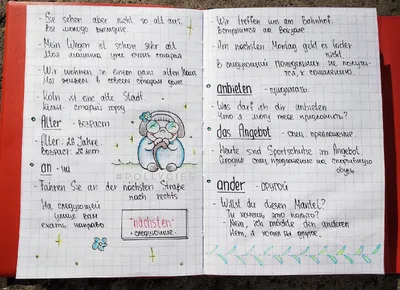 - Sie sehen aber nicht so alt aus.
Вы молодо выглядите.
- Mein Wagen ist schon sehr alt.
Моя машина уже очень старая
- Wir wohnen in einem ganz alten Haus
Мы живём в совсем старом доме
- Köln ist eine alte Stadt.
Кёльн - старый город
Alter - возраст
- Alter: 20 Jahre.
Возраст: 20 лет
an - на
- Fahren Sie an der nächsten Straße
nach rechts
На следующей
улице вам
ехать направо
"nächsten"
- следующие.
- Wir treffen uns am Bahnhof.
Встретимся на вокзале
- Am nächsten Montag geht es leider
nicht
В следующий понедельник не получит-
ся, к сожалению.
anbieten - предлагать.
- Was darf ich dir anbieten
Что я могу тебе предложить?
das Angebot - спец. предложение.
- Heute sind Sportschuhe im Angebot
Сегодня спец. предложение на спортивную
обувь
ander - другой
- Willst du diesen Mantel?
Ты хочешь это пальто?
- Nein, ich möchte den anderen
Нет, я хотел бы другое.